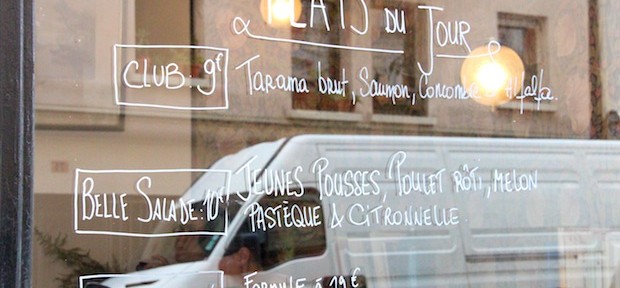 PLATS DU JOUR
CLUB: 9€ Tarama brut, Saumon, Concombre & Alfalfa.
BELLE SALADE: 10€ JEUNES POUSSES, POULET RÔTI, MELON
PASTÈQUE & CITRONNELLE.
FORMULE à 19€